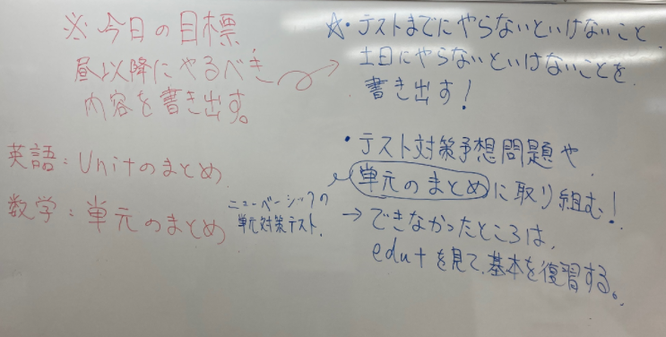 ※今日の目標
昼以降にやるべき
内容を書き出す。
英語：Unitのまとめ
数学：単元のまとめ
☆・テストまでにやらないといけないこと、
土日にやらないといけないことを
書き出す！
・テスト対策予想問題や
単元のまとめに取り組む！
ニューベーシックの
単元対策テスト
→できなかったところは、
edu+を見て、基本を復習する。